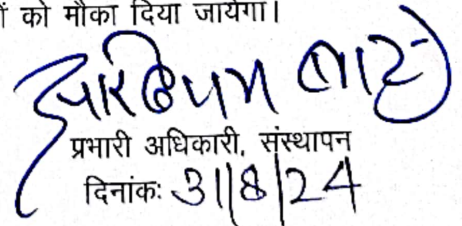 ं को मौका दिया जायेगा।
प्रभारी अधिकारी, संस्थापन
दिनांकः 31/8/24